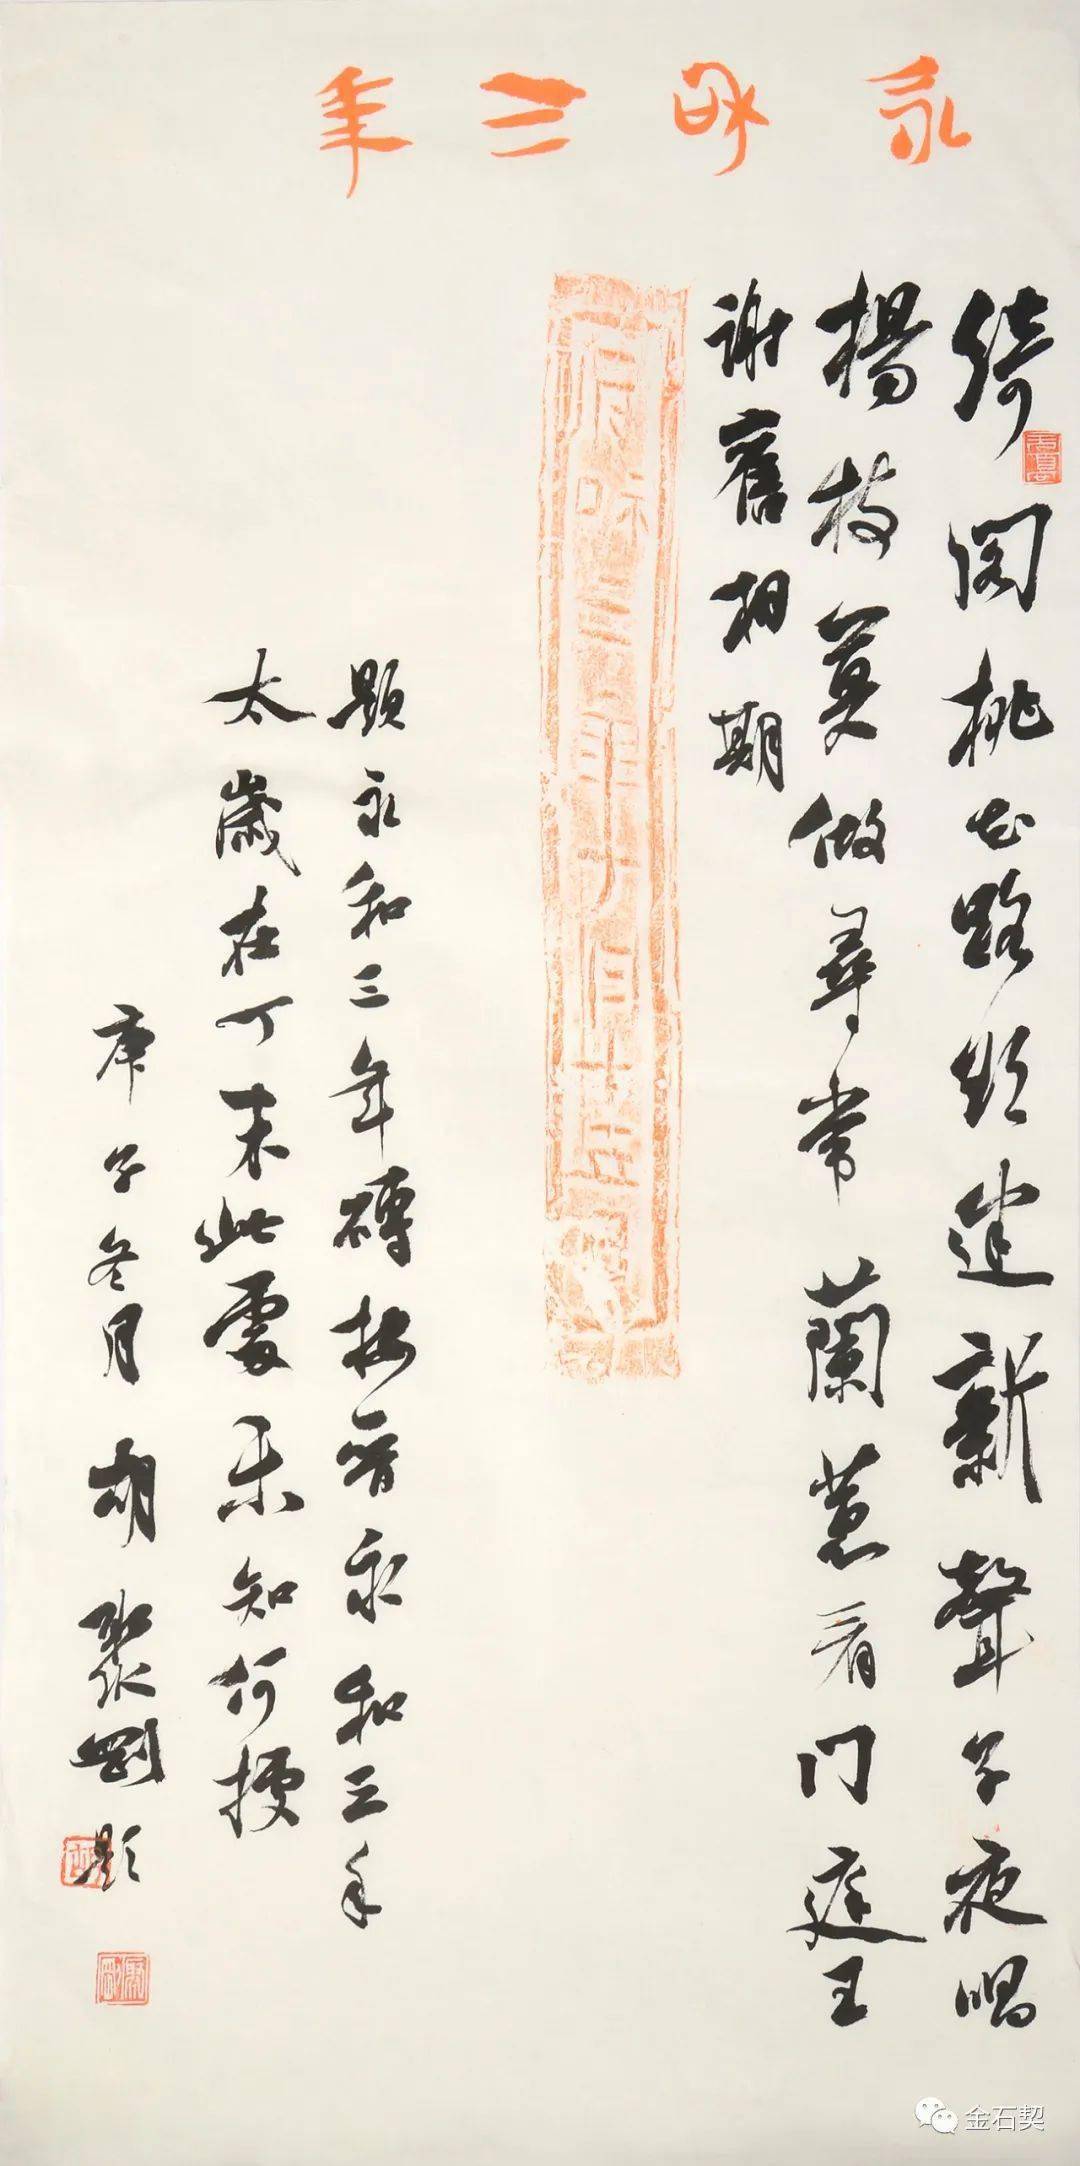 永和三年
绮阁桃花路欲迷新聲子夜唱
楊枝莫做尋常蘭蕙看門庭王
謝舊相期
題永和三年磚按晉永和三年
太歲在丁未此處未知何據
庚子冬月胡聚劉題
金石契